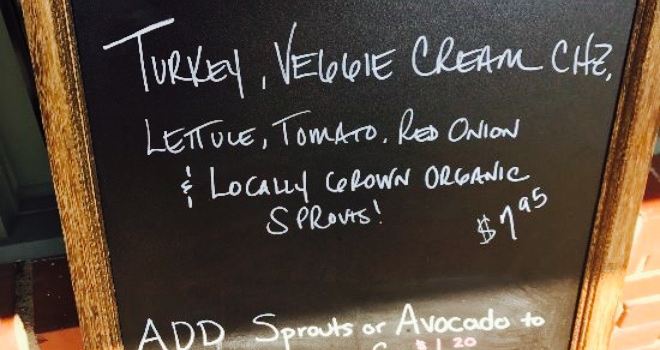 TURKEY, VEGGIE CREAM CHZ,
LETTUCE, TOMATO, RED ONION
& LOCALLY GROWN ORGANIC
SPROUTS!
$7.95
ADD Sprouts or Avocado to
$1.20